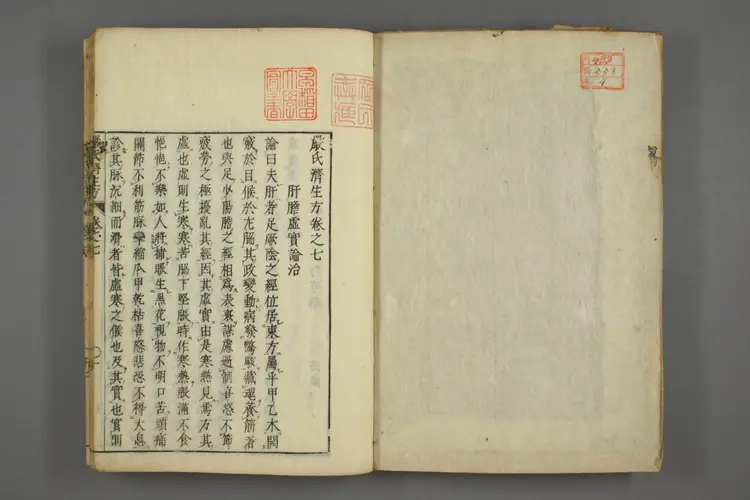 嚴氏濟生方卷之七
肝膽虛實論治
論曰夫肝者足厥陰之經位居東方屬乎甲乙木開
竅於目候於左脇其政變動病發驚駭藏魂養筋者
也與足少陽膽之經相爲表裏謀慮過制喜怒不節
疲勞之極擾亂其經因其虛實由是寒熱見焉方其
虛也虛則生寒寒苦脇下堅脹時作寒熱脹滿不食
悒悒不樂如人將捕眼生黑花視物不明口苦頭痛
關節不利筋脉攣縮爪甲乾枯喜怒悲恐不得大息
診其脉沉細而滑者皆虛寒之候也及其實也實則
嚴氏濟生方 卷之七